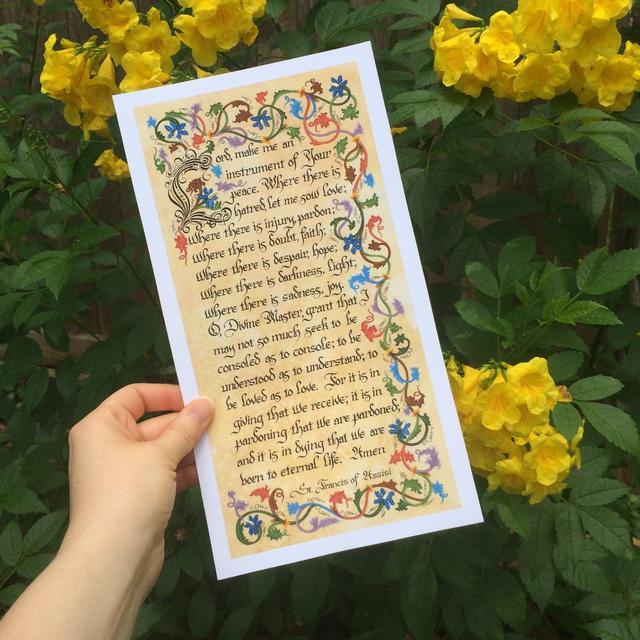 Lord, make me an
instrument of Your
peace. Where there is
hatred, let me sow love;
where there is injury, pardon;
where there is doubt, faith;
where there is despair, hope;
where there is darkness, light;
where there is sadness, joy.
O, Divine Master, grant that I
may not so much seek to be
consoled as to console; to be
understood as to understand; to
be loved as to love. For it is in
giving that we receive; it is in
pardoning that we are pardoned;
and it is in dying that we are
born to eternal life. Amen
St. Francis of Assisi